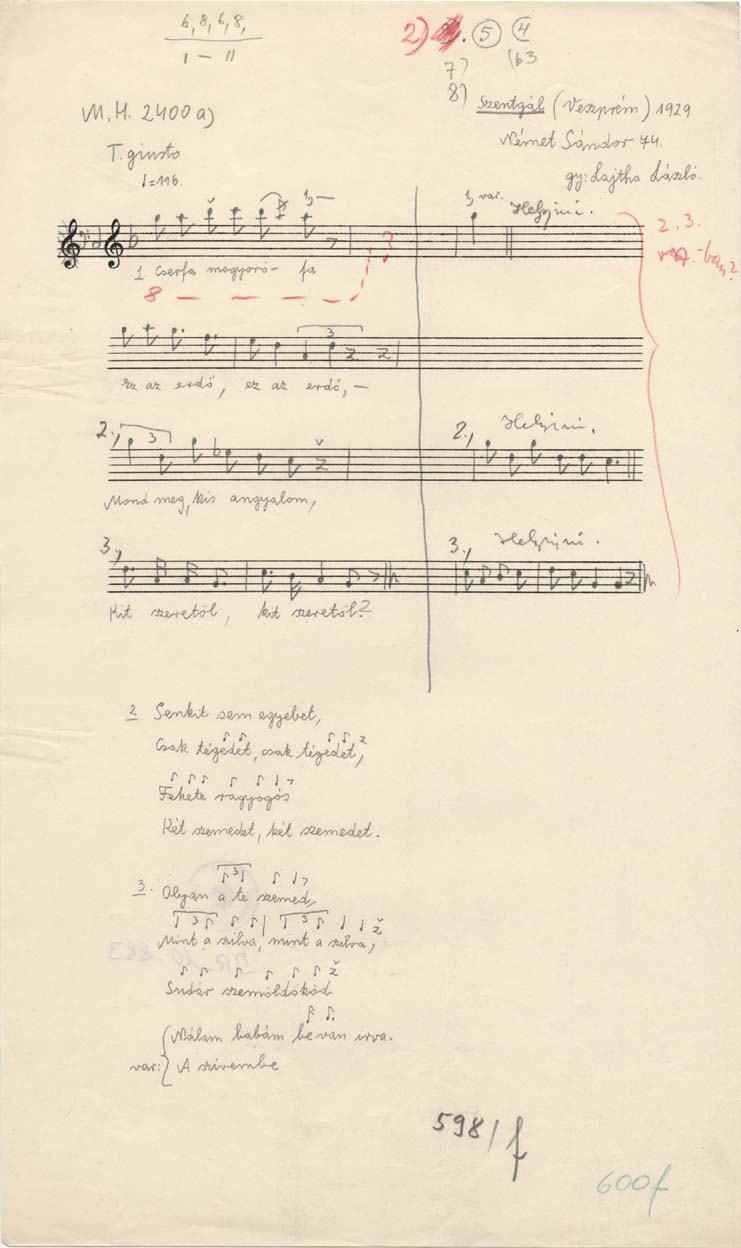 6, 8, 6, 8,
I – II
2) 5 4
7) (b3
8)
M.H. 2400 a)
Szentgál (Veszprém) 1929.
T. giusto
Német Sándor 74.
♩=116.
gy: Lajtha László.
1, —
1, var. Helyzini.
2. 3.
1. Cserfa mogyoró- fa
8 — — —
3
Ez az erdő, ez az erdő, —
2., 3
2., Helyzini.
Mond meg, kis angyalom,
3.,
3., Helyzini.
Kit szeretöl, kit szeretöl?
2 Senkit sem egyebet,
Csak tégedet, csak tégedet,
Fekete ragyogós
Két szemedet, két szemedet.
3
3. Olyan a te szemed,
3 3
Mint a szilva, mint a szilva,
Sudár szemöldököd
Nálam babám be van irva.
var: A szivembe
598/f
600f